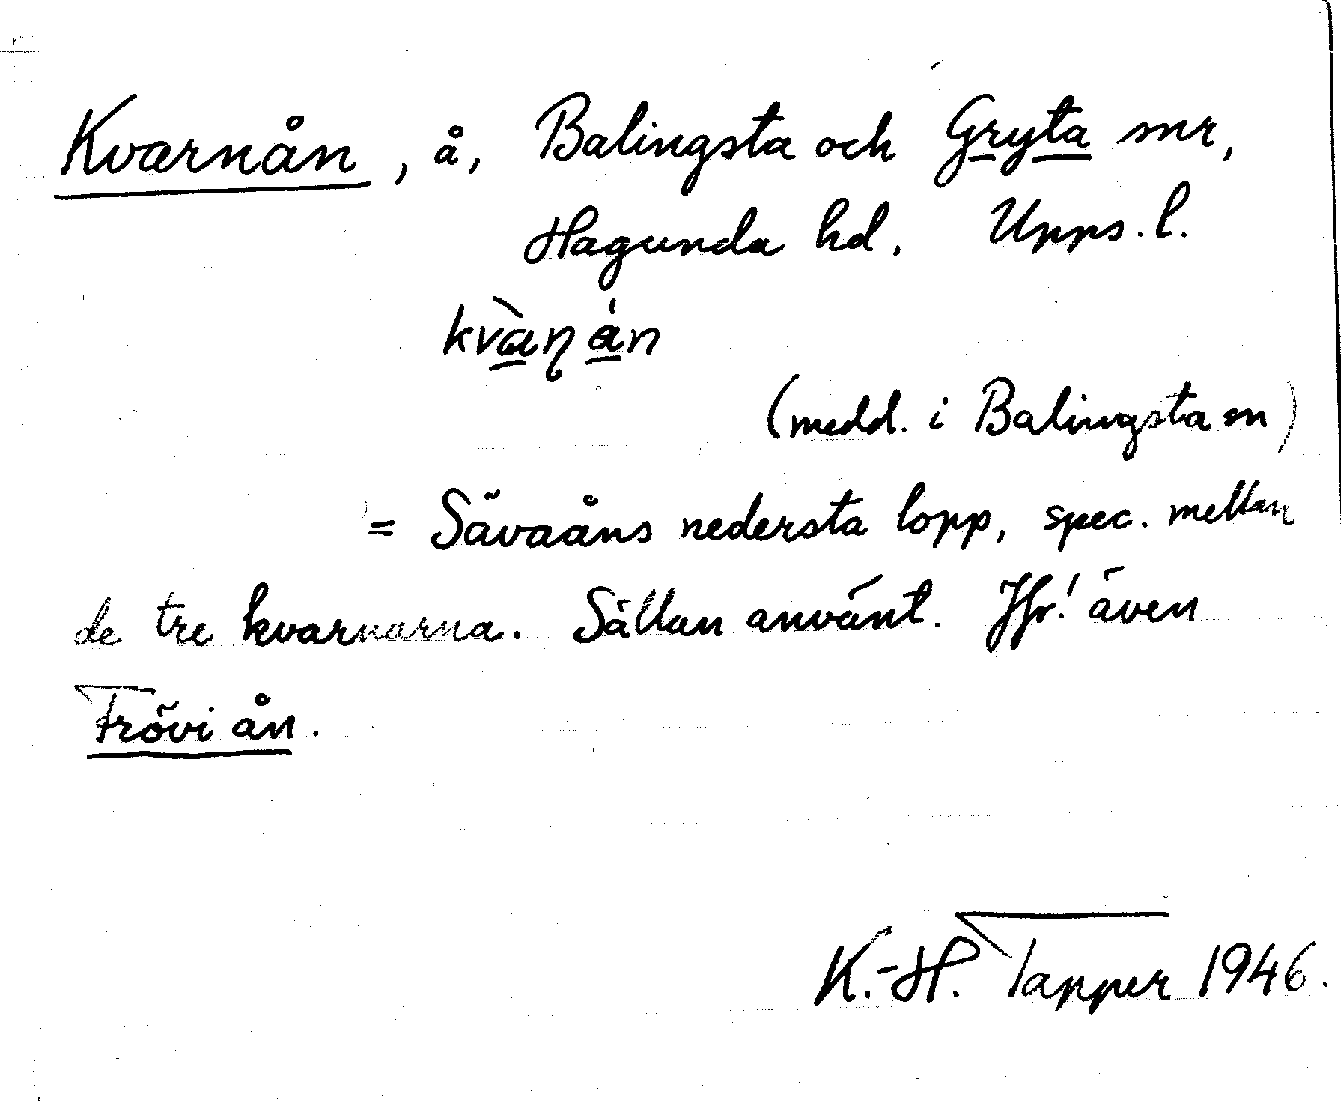 Kvarnån, å, Balingsta och Gryta snr,
Hagunda hd. Upps. l.
(medd. i Balingsta sn)
= Sävaåns nedersta lopp, spec. mellan
de tre kvarnarna. Sällan använt. Jfr! även
Frövi ån.
K.-H. Tapper 1946.